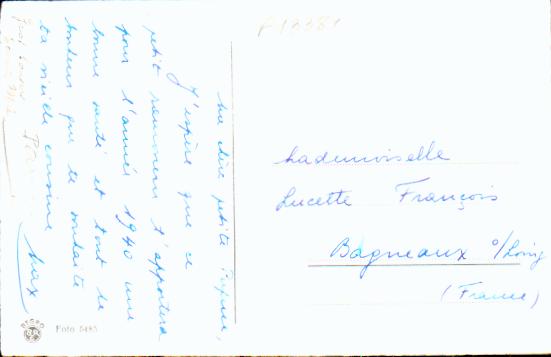 Ma chère petite
J'espère que ce
petit souvenir t'apportera
pour l'année 1940 une
bonne santé et tout le
bonheur que te souhaite
ta cousine
Max
Mademoiselle
Lucette François
Bagneaux s/Loing
(France)
Foto 6485